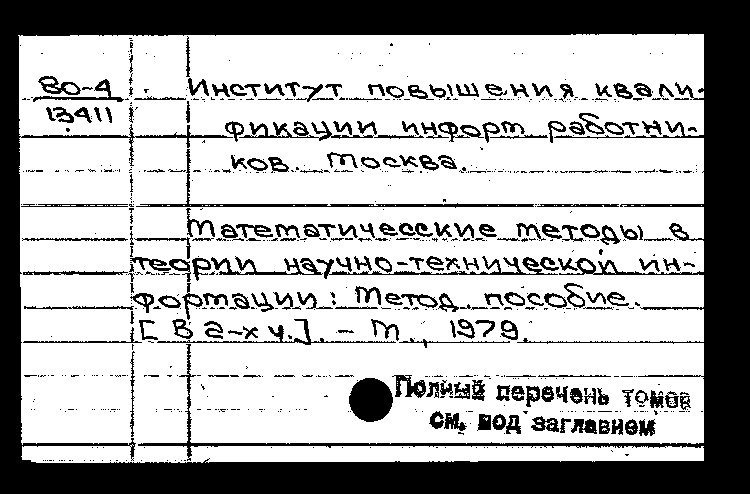 80-4
13411
Институт повышения квали-
фикации информ. работни-
ков. Москва.
Математичесские методы в
теории научно-технической ин-
формации: Метод. пособие.
[В 2-х ч.]. - М., 1979.
Полный перечень томов
см. под заглавием